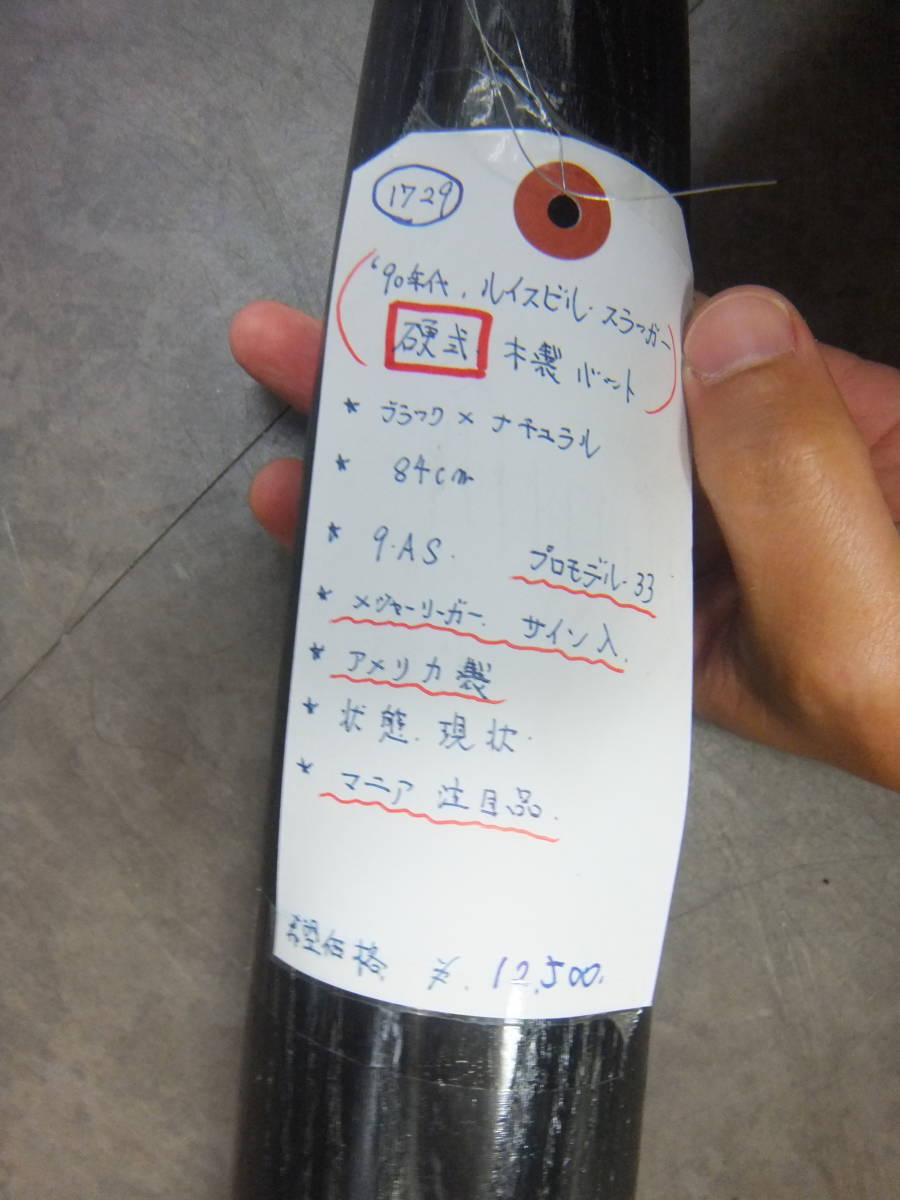 1729
'90年代.ルイスビル・スラッガー
硬式 木製バット
* ブラック×ナチュラル
* 84cm
* 9.AS. プロモデル.33
* メジャーリーガー. サイン入.
* アメリカ製
* 状態.現状.
* マニア注目品.
価格 ¥.12,500.